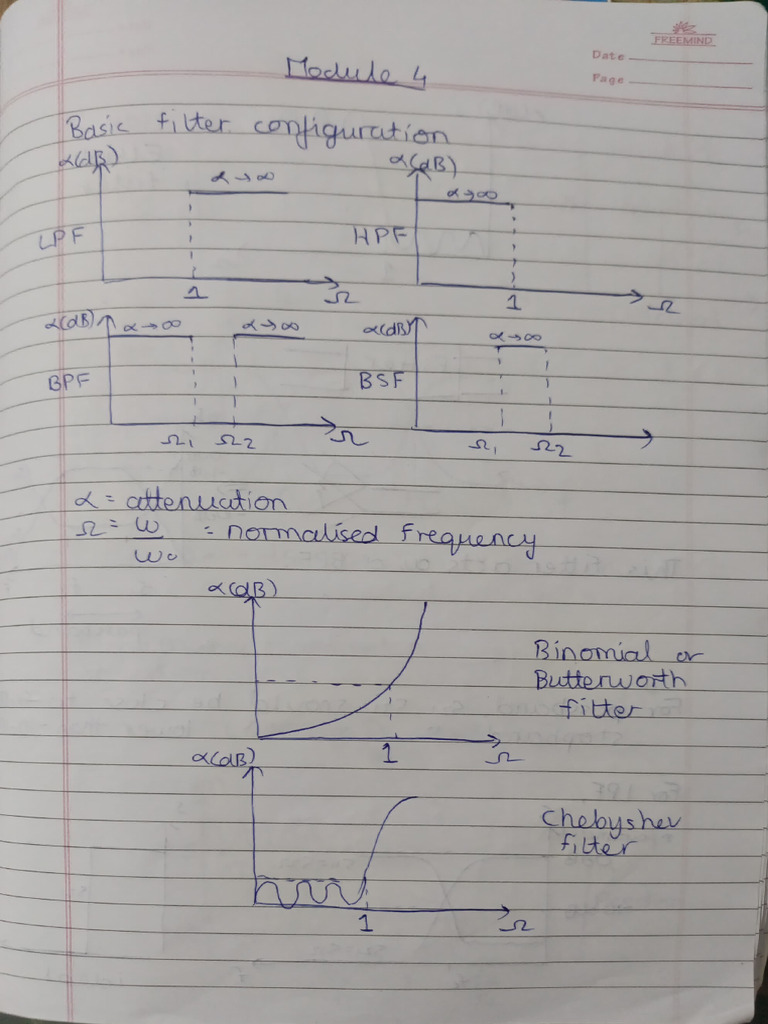 FREEMIND
Date
Page
Module 4
Basic filter configuration
α(dB)
α→∞
LPF
1
Ω
α(dB)
α→∞
HPF
1
Ω
α(dB)
α→∞
α→∞
BPF
Ω1 Ω2
Ω
α(dB)
α→∞
BSF
Ω1 Ω2
α = attenuation
Ω = ω/ω0 = normalised frequency
α(dB)
Binomial or
Butterworth
filter
1
Ω
α(dB)
Chebyshev
filter
1
Ω